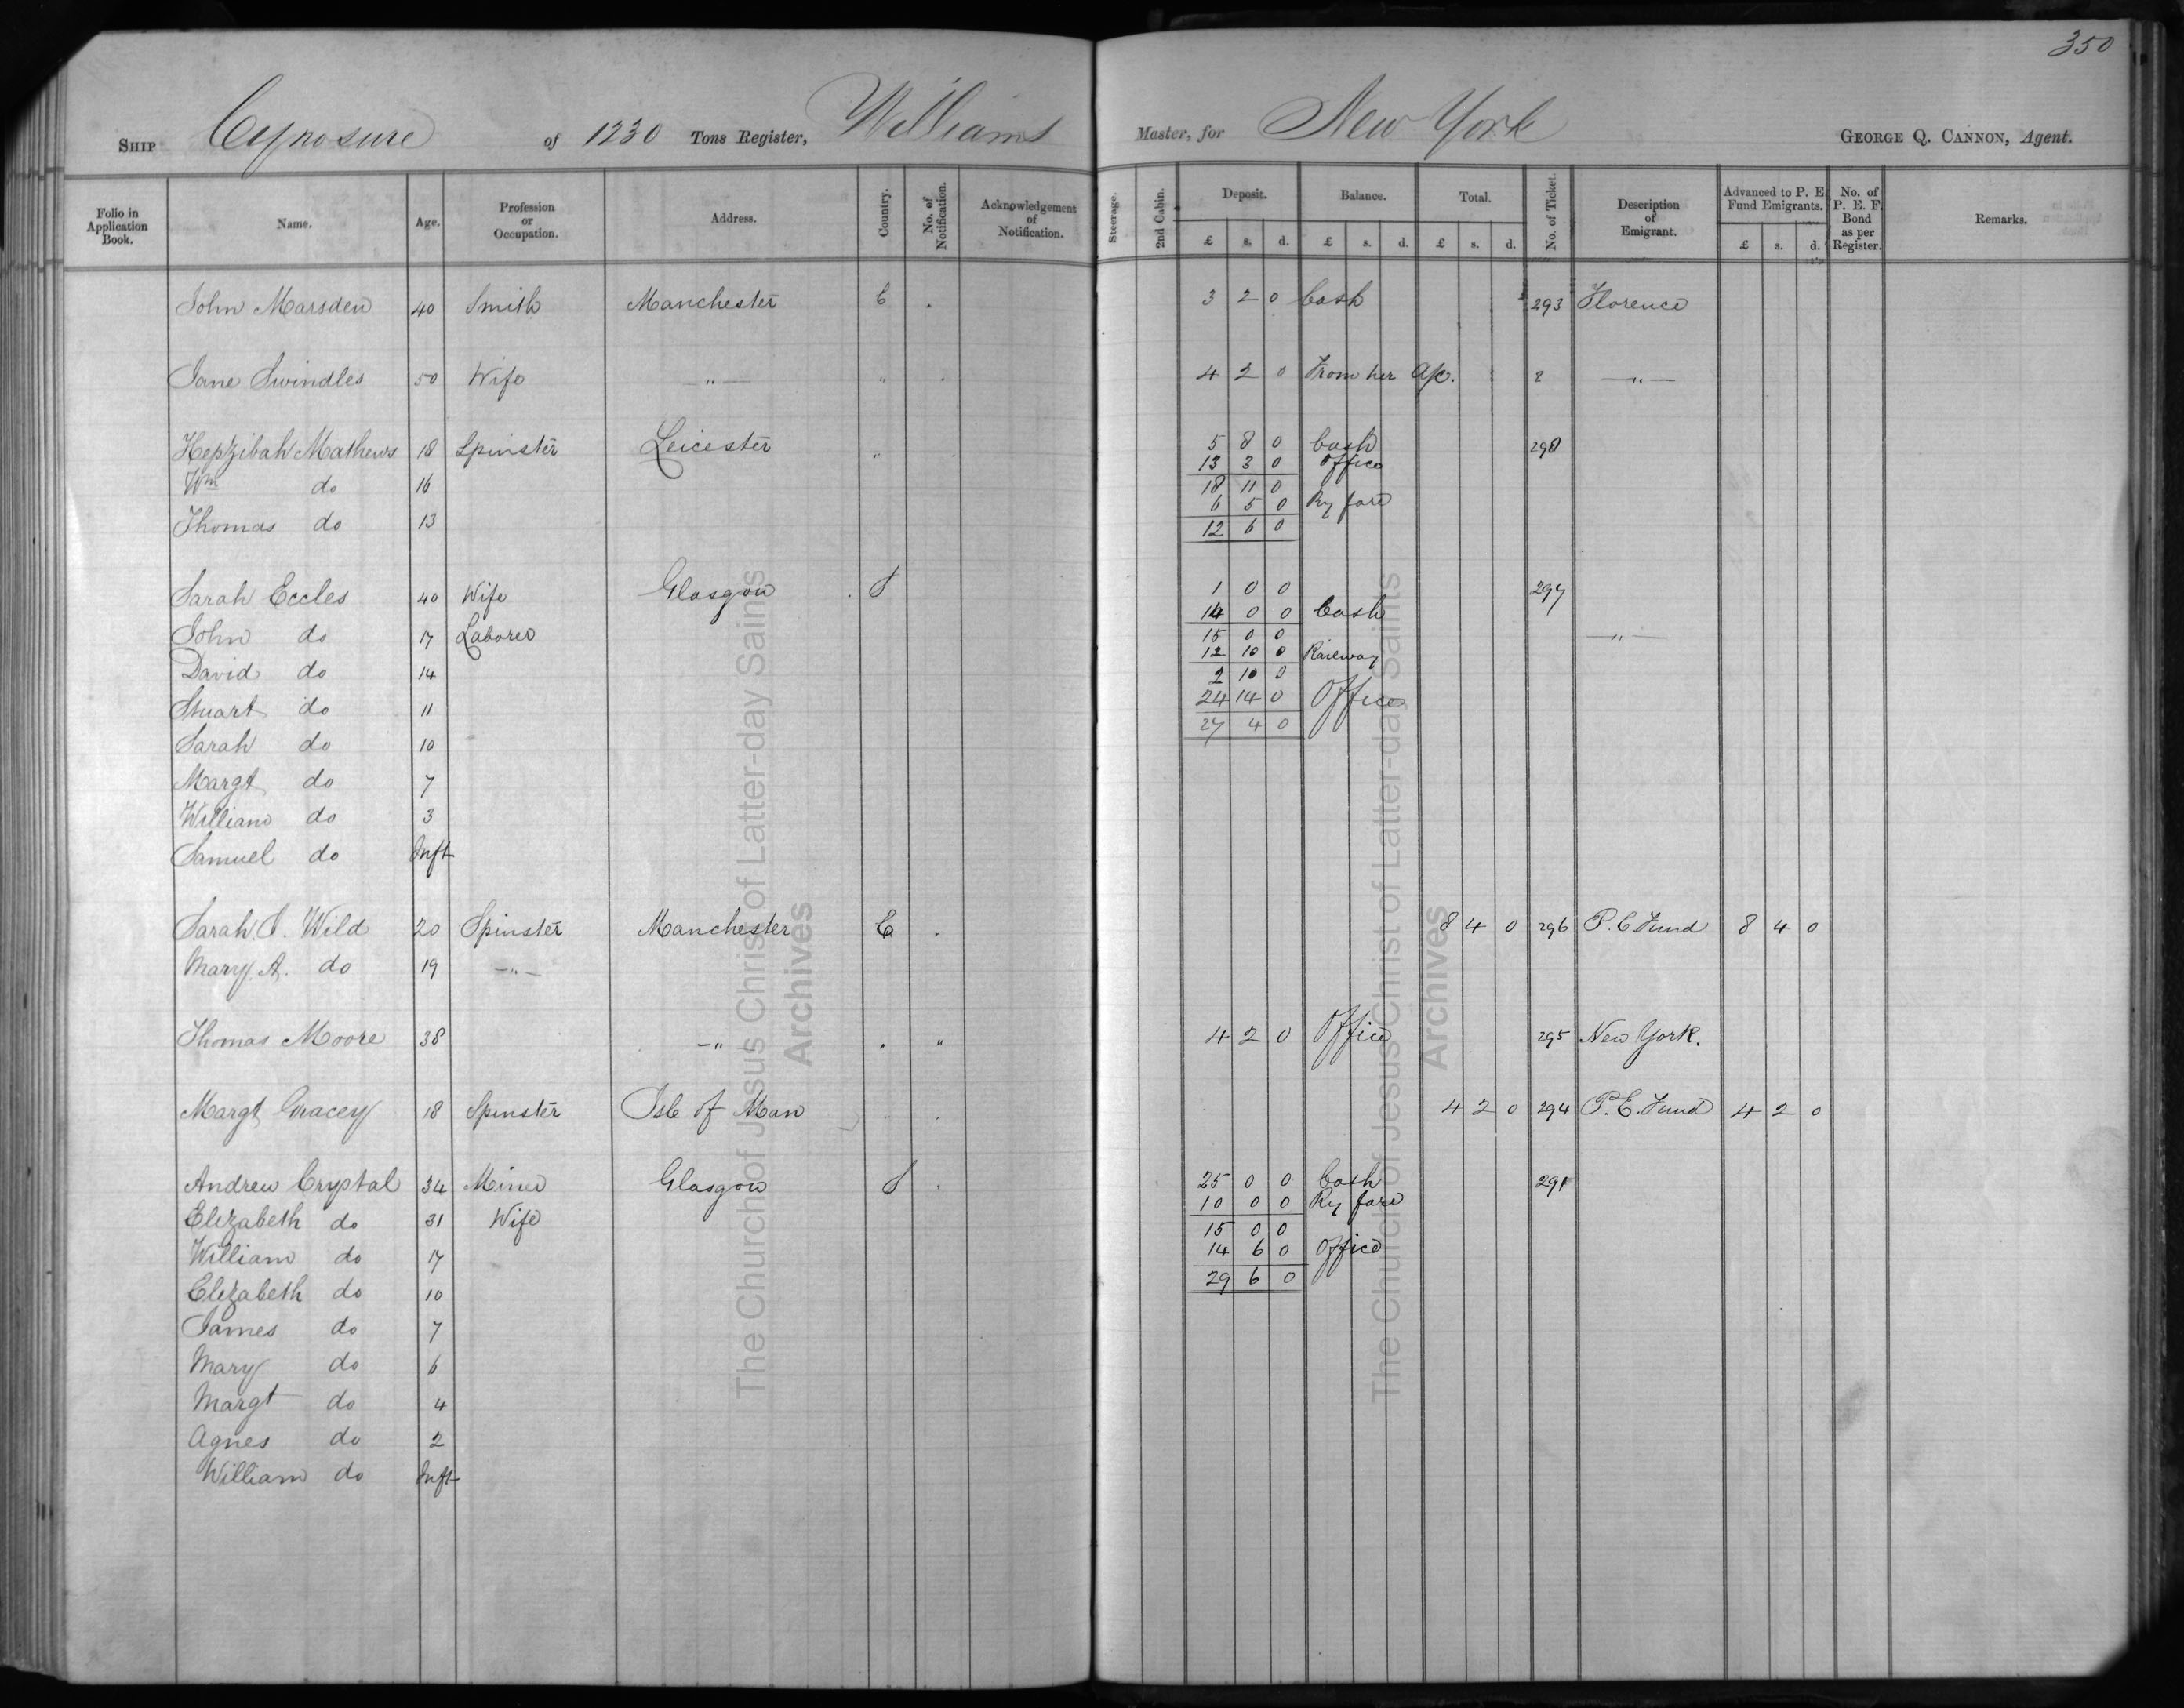 350
SHIP Cynosure of 1230 Tons Register, Williams Master, for New York GEORGE Q. CANNON, Agent.
Folio in Application Book. Name. Age. Profession or Occupation. Address. Country. No. of Notification. Acknowledgement of Notification. Steerage. 2nd Cabin. Deposit. Balance. Total. No. of Ticket. Description of Emigrant. Advanced to P. E. Fund Emigrants. No. of P. E. F. Bond as per Register. Remarks.
£ s. d. £ s. d. £ s. d. £ s. d.
John Marsden 40 Smith Manchester E 3 2 0 Cash 293 Florence
Jane Swindles 50 Wife —"— " 4 2 0 From her A/c. —"—
Hepzibah Mathews 18 Spinster Leicester " 5 8 0 Cash 298
13 3 0 Office
Wm do 16 18 11 0
6 5 0 Ry fare
Thomas do 13 12 6 0
Sarah Eccles 40 Wife Glasgow S 1 0 0 297
14 0 0 Cash
John do 17 Laborer 15 0 0 —"—
12 10 0 Railway
David do 14 2 10 0
Stuart do 11 24 14 0 Office
27 4 0
Sarah do 10
Margt do 7
William do 3
Samuel do Inft
Sarah J. Wild 20 Spinster Manchester E 8 4 0 296 P. E Fund 8 4 0
Mary A. do 19 —"—
Thomas Moore 38 —" " 4 2 0 Office 295 New York.
Margt Gracey 18 Spinster Isle of Man 4 2 0 294 P. E. Fund 4 2 0
Andrew Crystal 34 Miner Glasgow S 25 0 0 Cash 291
10 0 0 Ry fare
Elizabeth do 31 Wife 15 0 0
William do 17 14 6 0 Office
29 6 0
Elizabeth do 10
James do 7
Mary do 6
Margt do 4
Agnes do 2
William do Inft
The Church of Jesus Christ of Latter-day Saints
Archives
The Church of Jesus Christ of Latter-day Saints
Archives